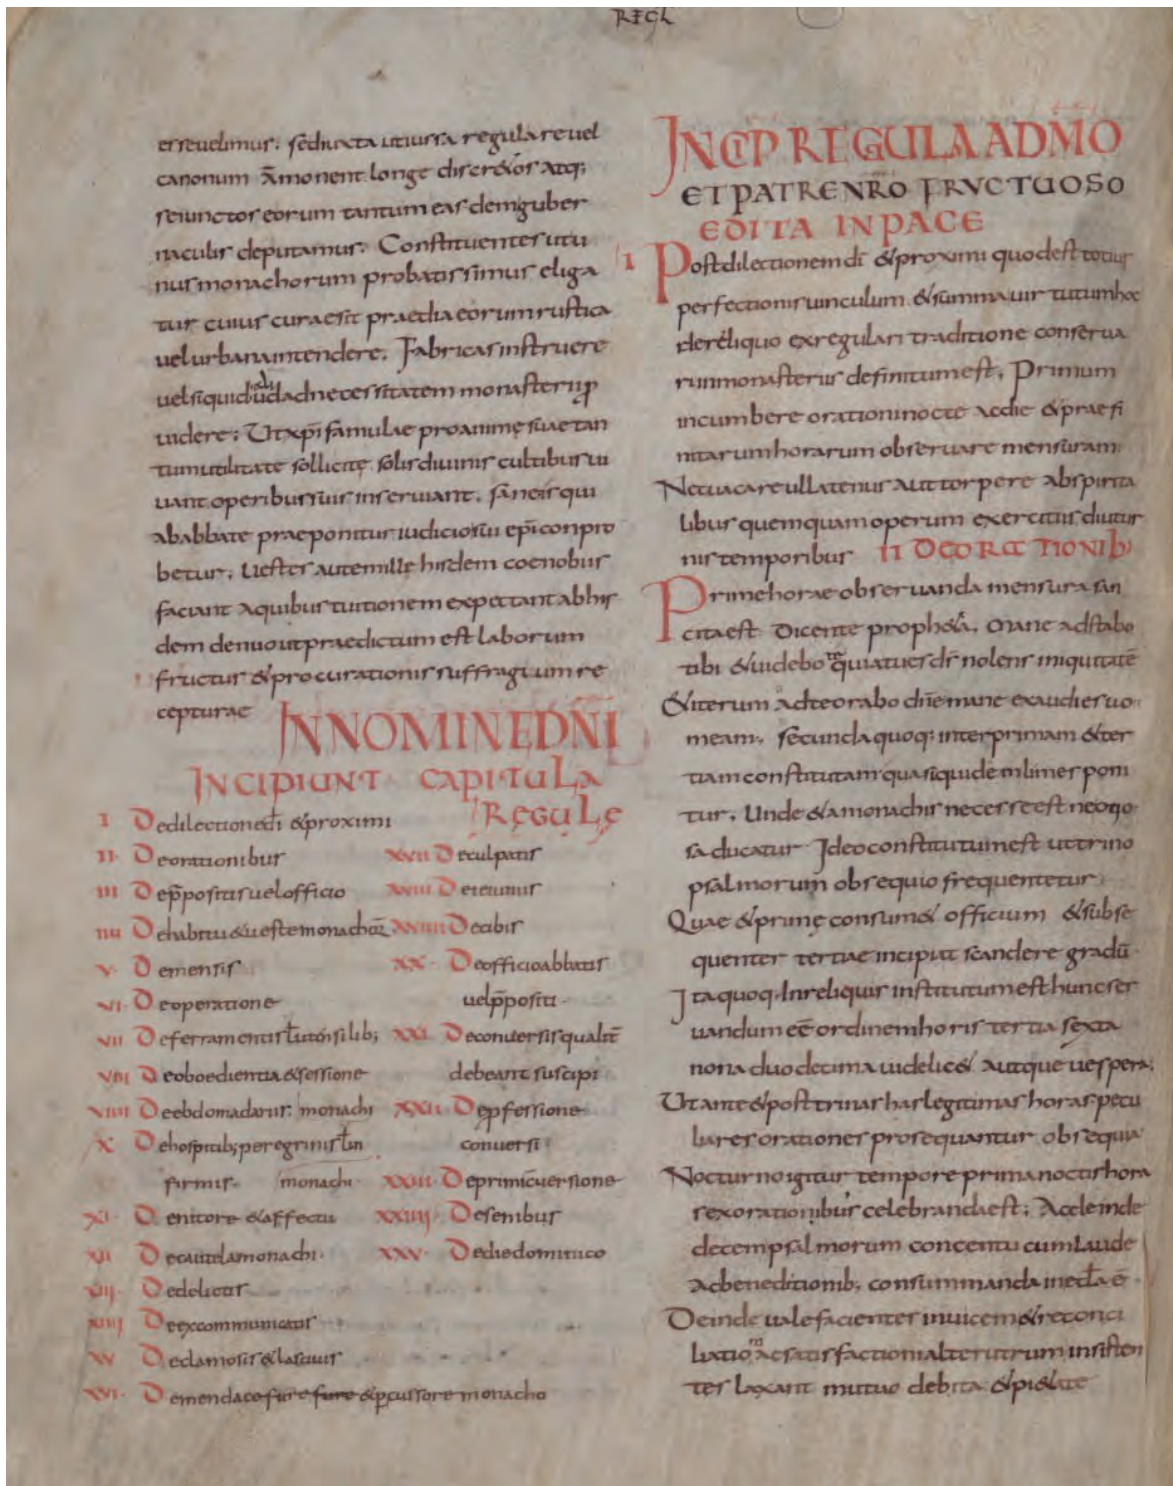 REGL
esse uelimus; sed iuxta ut iussa regulare uel
canonum āmonent longe discr&os atq;
seiunctos eorum tantum eas dem guber
naculis deputamus; Constituentes ut u
nus monachorum probatissimus eliga
tur cuius cura sit praedia eorum rustica
uel urbana intendere. Fabricas instruere
uel siquid ad necessitatem monasterii p
uidere; Ut xp̄i famulae pro anime suae tan
tum utilitate sollicite solis diuinis cultibus ui
uant operibus suis inseruiant. sane is qui
ab abbate praeponitur iudicio sui ep̄i conpro
betur; Uestes autem ille hisdem coenobiis
faciant a quibus tuitionem expectant ab his
dem denuo ut praedictum est laborum
fructus & procurationis suffragium re
cepturae
IN NOMINE DN̄I
INCIPIUNT CAPITULA
REGULE
I De dilectione dī & proximi
II De orationibus
III De p̄positis uel officio
IIII De habitu & ueste monachoꝝ
V De mensis
VI De operatione
VII De ferramentis ł utensilib;
VIII De oboedientia & sessione
VIIII De ebdomadariis monachi
X De hospitib; peregrinis ł in
firmis monachi
XI De nitore & affectu
XII De cautela monachi
XIII De delictis
XIIII De excommunicatis
XV De clamosis & lasciuis
XVI De mendace fure & p̱cussore monacho
XVII De culpatis
XVIII De ieiuniis
XVIIII De cibis
XX De officio abbatis
uel p̄positi
XXI De conuersis qualit̄
debeant suscipi
XXII De p̱fessione
conuersi
XXIII De primi cuersione
XXIIII De senibus
XXV De die dominico
INCP REGULA A DMO
ET PATRE NR̄O FRVCTUOSO
EDITA IN PACE
I Post dilectionem dī & proximi quod est totius
perfectionis uinculum & summa uirtutum hoc
de reliquo ex regulari traditione conserua
ri in monasteriis definitum est. Primum
incumbere orationi nocte ac die & praefi
nitarum horarum obseruare mensuram
Nec uacare ullatenus aut torpere ab spirita
libus quemquam operum exercitiis diutur
nis temporibus II DE ORATIONIB;
Prime horae obseruanda mensura san
cita est Dicente proph&a. Mane adstabo
tibi & uidebo quia tu es dś nolens iniquitatē
& iterum ad te orabo dn̄e mane exaudies uo
meam. Secunda quoq; inter primam & ter
tiam constituta quasi quidem limes poni
tur. Unde & a monachis necesse est ne otio
sa ducatur Ideo constitutum est ut trino
psalmorum obsequio frequentetur
Quae & prime consum& officium & subse
quenter tertiae incipiat scandere gradū
Ita quoq; In reliquis institutum est hunc ser
uandum eē ordinem horis tertia sexta
nona duodecima uidelic& atque uespera;
Ut ante & post trinas has legitimas horas pecu
liares orationes prosequantur obsequia
Nocturno igitur tempore prima noctis hora
sex orationibus celebranda est; Ac deinde
decem psalmorum concentu cum laude
ac benedictionib; consummanda in ecl̄a ē
Deinde uale facientes inuicem & reconci
liatio ac satisfactioni alterutrum insisten
tes laxant mutuo debita & pi&ate